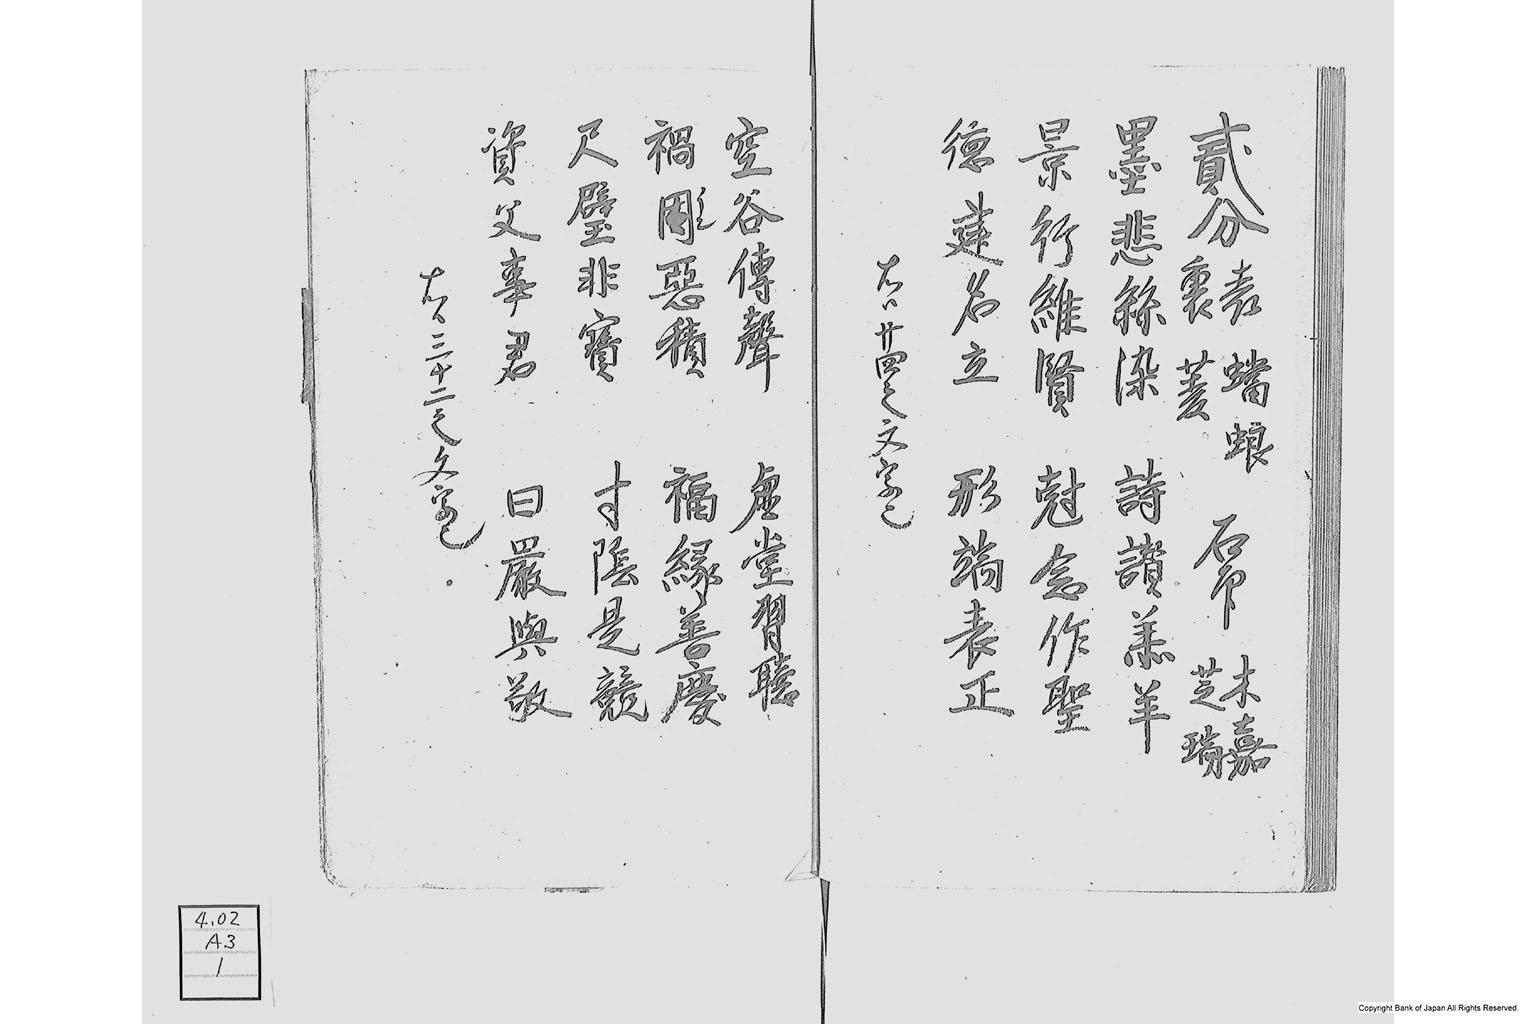 貳分 表 蟷蜋 石印 木嘉
裏 菱 芝瑞
墨悲絲染 詩讃羔羊
景行維賢 尅念作聖
徳建名立 形端表正
右ハ廿四之文字也
空谷傳聲 虚堂習聽
禍彫惡積 福縁善慶
尺璧非寳 寸陰是競
資父事君 曰嚴與敬
右ハ三十二之文字也
4.02
A3
1
Copyright Bank of Japan All Rights Reserved.